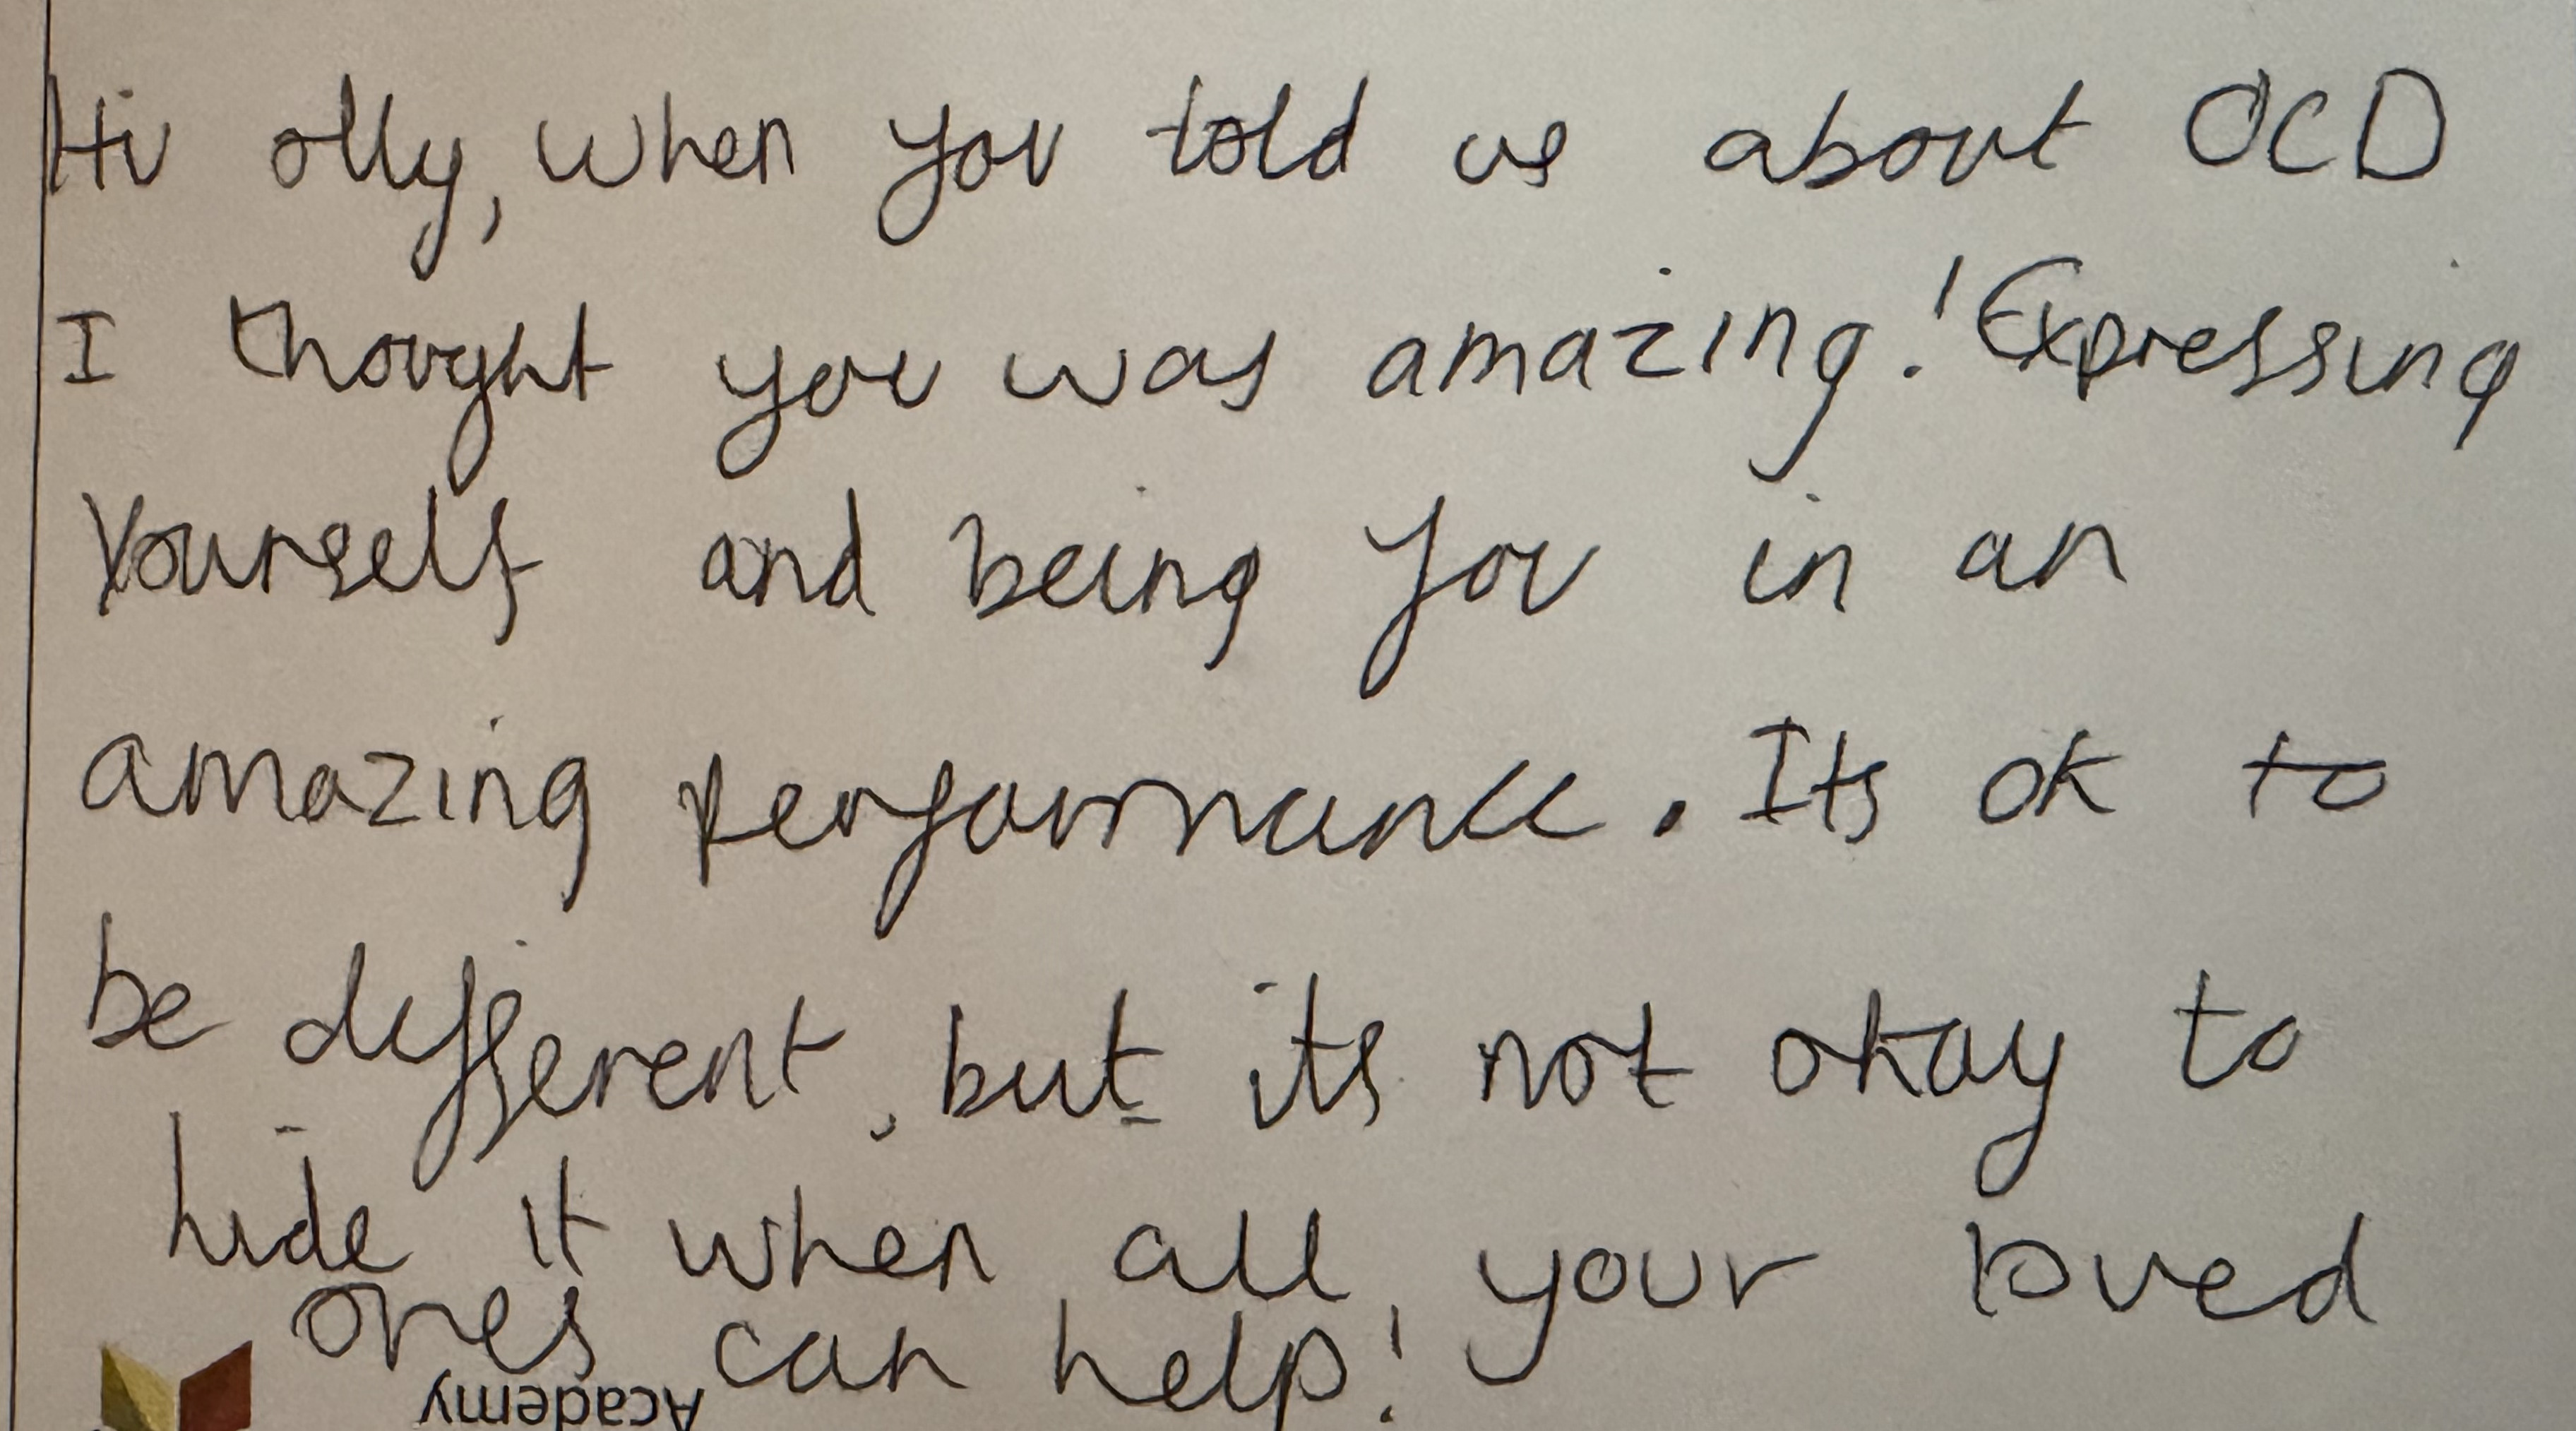 Hi olly, when you told us about OCD
I thought you was amazing! Expressing
Yourself and being you in an
amazing performance. Its ok to
be different, but its not okay to
hide it when all your loved
ones can help!
Academy